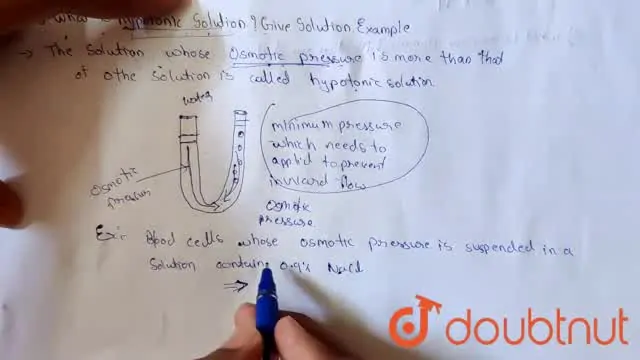 What is hypotonic Solution? Give Solution Example
→ The Solution whose Osmotic pressure is more than that
of othe solution is called hypotonic solution.
water
minimum pressure
which needs to
applid to prevent
inward flow
Osmotic
pressure
Osmotic
pressure
Ex:- Blood cells whose osmotic pressure is suspended in a
Solution contains 0.9% Nacl
⇒
doubtnut